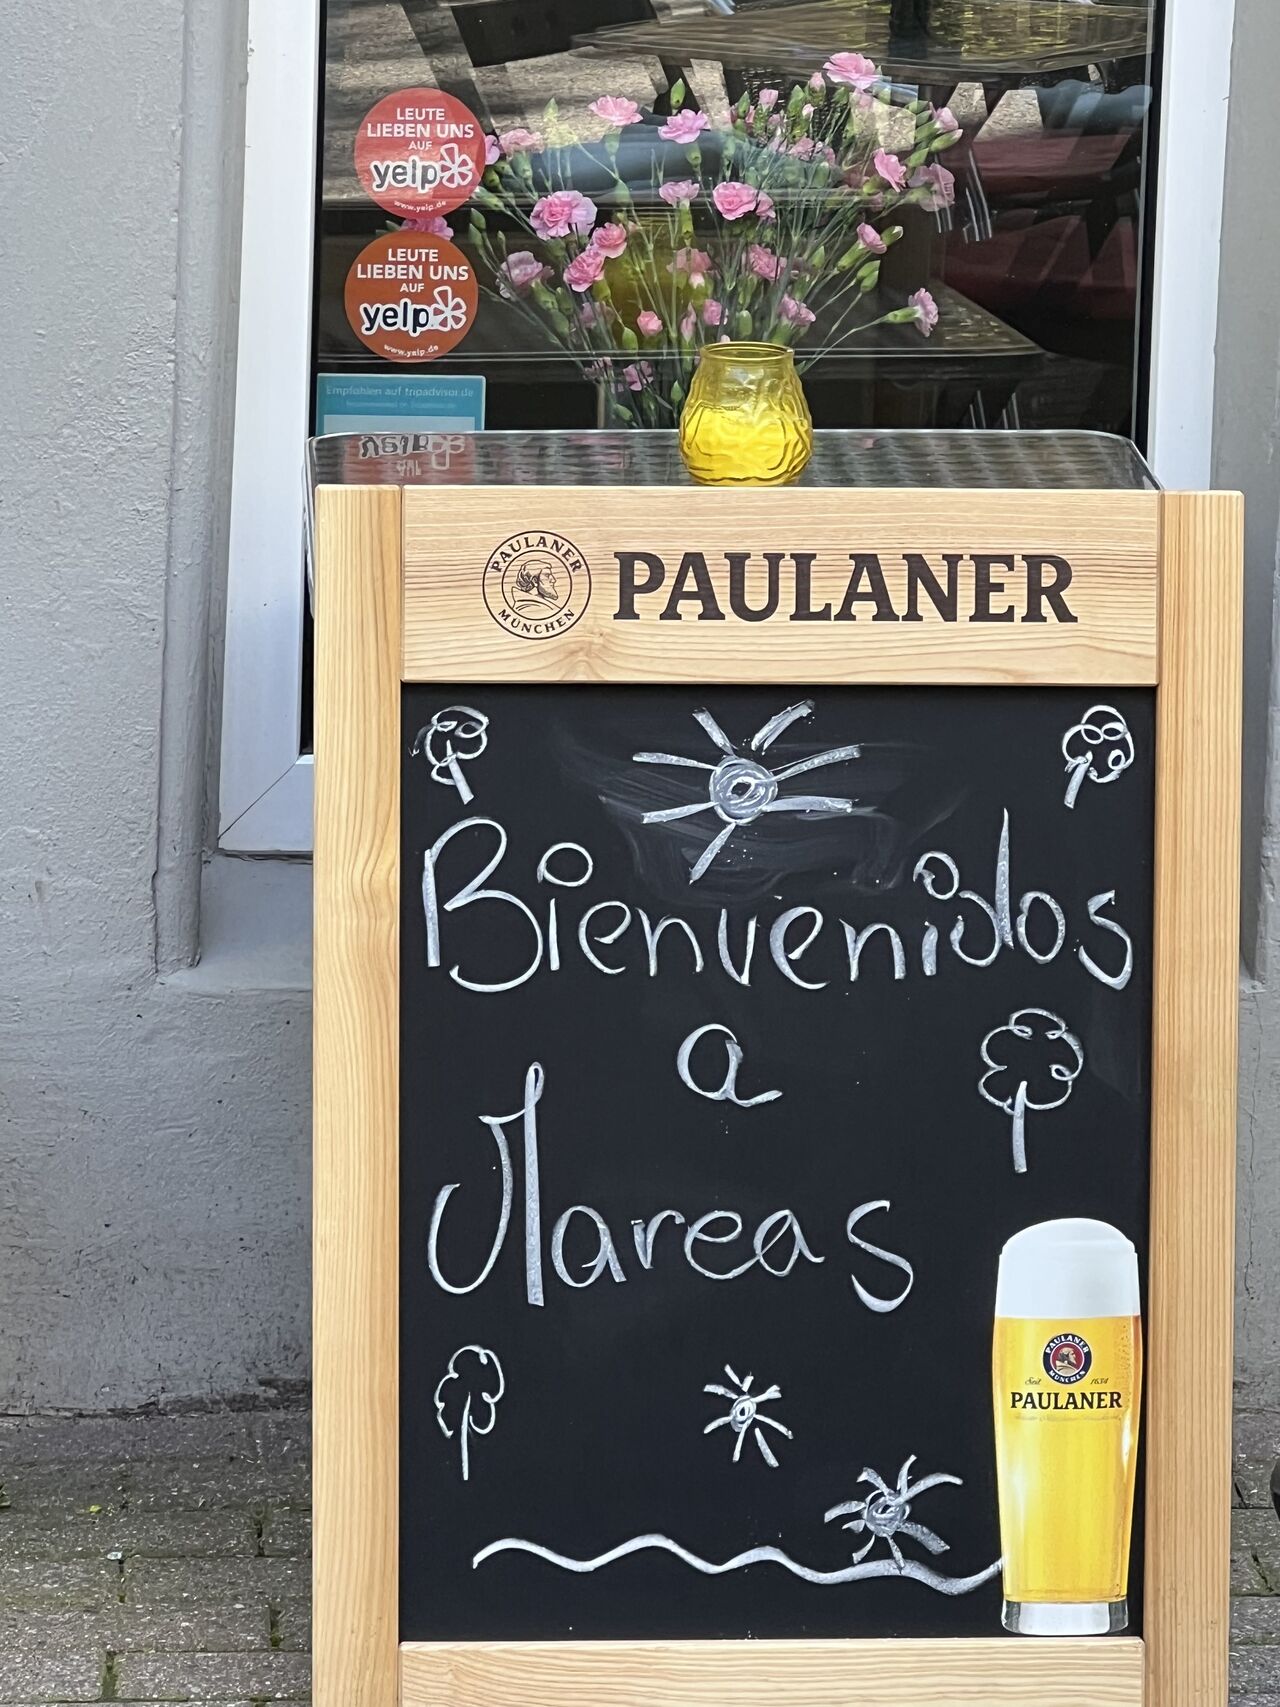 LEUTE
LIEBEN UNS
AUF
yelp
www.yelp.de
LEUTE
LIEBEN UNS
AUF
yelp
www.yelp.de
Empfohlen auf tripadvisor.de
yelp
PAULANER
MÜNCHEN
PAULANER
Bienvenidos
a
Mareas
PAULANER
MÜNCHEN
Seit 1634
PAULANER